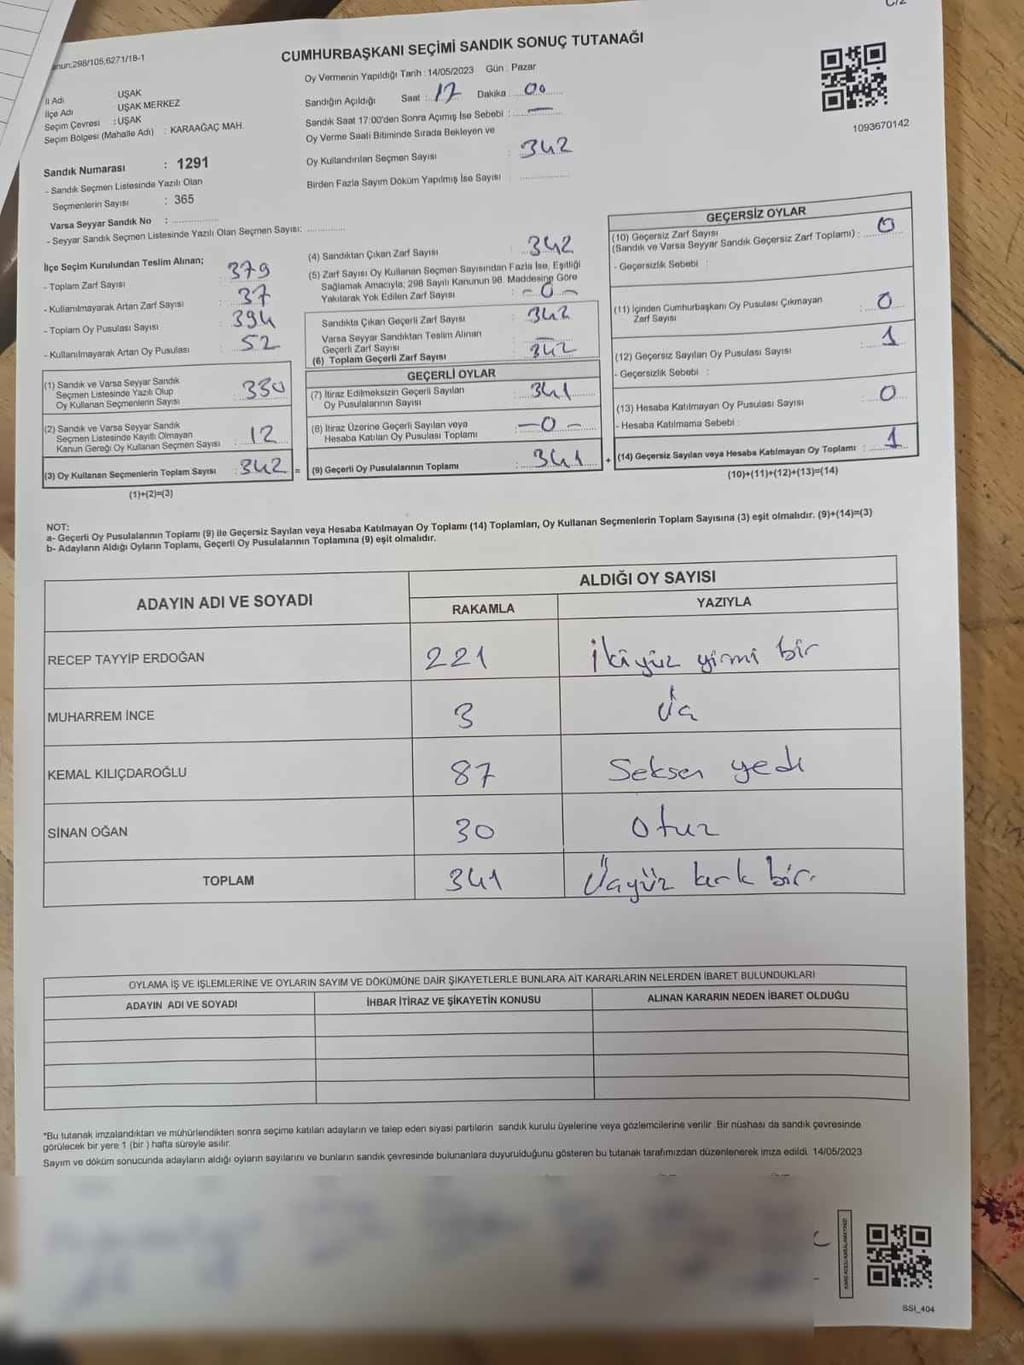 CUMHURBAŞKANI SEÇİMİ SANDIK SONUÇ TUTANAĞI
298/105,6271/18-1
Oy Vermenin Yapıldığı Tarih : 14/05/2023 Gün : Pazar
Sandığın Açıldığı Saat : 17 Dakika 00
Sandık Saat 17:00'den Sonra Açımış İse Sebebi : —
Oy Verme Saati Bitiminde Sırada Bekleyen ve
Oy Kullandırılan Seçmen Sayısı : 342
Birden Fazla Sayım Döküm Yapılmış İse Sayısı
1093670142
İl Adı UŞAK
İlçe Adı UŞAK MERKEZ
Seçim Çevresi : UŞAK
Seçim Bölgesi (Mahalle Adı) : KARAAĞAÇ MAH.
Sandık Numarası : 1291
- Sandık Seçmen Listesinde Yazılı Olan
Seçmenlerin Sayısı : 365
Varsa Seyyar Sandık No :
- Seyyar Sandık Seçmen Listesinde Yazılı Olan Seçmen Sayısı:
İlçe Seçim Kurulundan Teslim Alınan;
- Toplam Zarf Sayısı 379
- Kullanılmayarak Artan Zarf Sayısı 37
- Toplam Oy Pusulası Sayısı 394
- Kullanılmayarak Artan Oy Pusulası 52
(1) Sandık ve Varsa Seyyar Sandık
Seçmen Listesinde Yazılı Olup
Oy Kullanan Seçmenlerin Sayısı 330
(2) Sandık ve Varsa Seyyar Sandık
Seçmen Listesinde Kayıtlı Olmayan
Kanun Gereği Oy Kullanan Seçmen Sayısı 12
(3) Oy Kullanan Seçmenlerin Toplam Sayısı : 342 =
(1)+(2)=(3)
(4) Sandıktan Çıkan Zarf Sayısı 342
(5) Zarf Sayısı Oy Kullanan Seçmen Sayısından Fazla İse, Eşitliği
Sağlamak Amacıyla; 298 Sayılı Kanunun 98. Maddesine Göre
Yakılarak Yok Edilen Zarf Sayısı : -0-
Sandıkta Çıkan Geçerli Zarf Sayısı : 342
Varsa Seyyar Sandıktan Teslim Alınan
Geçerli Zarf Sayısı —
(6) Toplam Geçerli Zarf Sayısı 342
GEÇERLİ OYLAR
(7) İtiraz Edilmeksizin Geçerli Sayılan
Oy Pusulalarının Sayısı 341
(8) İtiraz Üzerine Geçerli Sayılan veya
Hesaba Katılan Oy Pusulası Toplamı -0-
(9) Geçerli Oy Pusulalarının Toplamı : 341 +
GEÇERSİZ OYLAR
(10) Geçersiz Zarf Sayısı
(Sandık ve Varsa Seyyar Sandık Geçersiz Zarf Toplamı) : 0
- Geçersizlik Sebebi :
(11) İçinden Cumhurbaşkanı Oy Pusulası Çıkmayan
Zarf Sayısı : 0
(12) Geçersiz Sayılan Oy Pusulası Sayısı : 1
- Geçersizlik Sebebi :
(13) Hesaba Katılmayan Oy Pusulası Sayısı : 0
- Hesaba Katılmama Sebebi :
(14) Geçersiz Sayılan veya Hesaba Katılmayan Oy Toplamı : 1
(10)+(11)+(12)+(13)=(14)
NOT:
a- Geçerli Oy Pusulalarının Toplamı (9) ile Geçersiz Sayılan veya Hesaba Katılmayan Oy Toplamı (14) Toplamları, Oy Kullanan Seçmenlerin Toplam Sayısına (3) eşit olmalıdır. (9)+(14)=(3)
b- Adayların Aldığı Oyların Toplamı, Geçerli Oy Pusulalarının Toplamına (9) eşit olmalıdır.
ADAYIN ADI VE SOYADI ALDIĞI OY SAYISI
RAKAMLA YAZIYLA
RECEP TAYYİP ERDOĞAN 221 İkiyüz yirmi bir
MUHARREM İNCE 3 Üç
KEMAL KILIÇDAROĞLU 87 Seksen yedi
SİNAN OĞAN 30 Otuz
TOPLAM 341 Üçyüz kırk bir.
OYLAMA İŞ VE İŞLEMLERİNE VE OYLARIN SAYIM VE DÖKÜMÜNE DAİR ŞİKAYETLERLE BUNLARA AİT KARARLARIN NELERDEN İBARET BULUNDUKLARI
ADAYIN ADI VE SOYADI İHBAR İTİRAZ VE ŞİKAYETİN KONUSU ALINAN KARARIN NEDEN İBARET OLDUĞU
*Bu tutanak imzalandıktan ve mühürlendikten sonra seçime katılan adayların ve talep eden siyasi partilerin sandık kurulu üyelerine veya gözlemcilerine verilir. Bir nüshası da sandık çevresinde
görülecek bir yere 1 (bir ) hafta süreyle asılır.
Sayım ve döküm sonucunda adayların aldığı oyların sayılarını ve bunların sandık çevresinde bulunanlara duyurulduğunu gösteren bu tutanak tarafımızdan düzenlenerek imza edildi. 14/05/2023
BSI_404